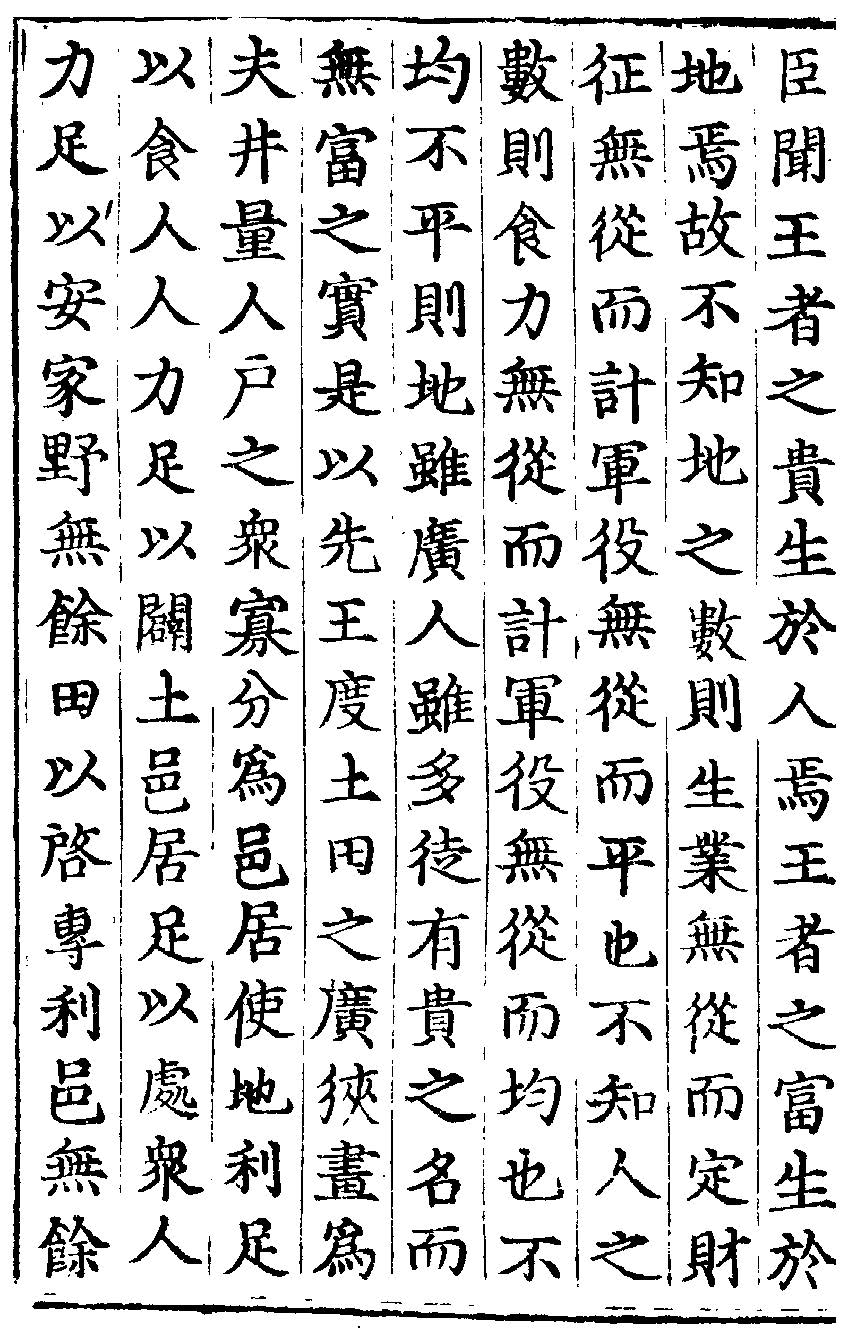 臣聞王者之貴生於人焉王者之富生於
地焉故不知地之數則生業無從而定財
征無從而計軍役無從而平也不知人之
數則食力無從而計軍役無從而均也不
均不平則地雖廣人雖多徒有貴之名而
無富之實是以先王度土田之廣狹畫爲
夫井量人戶之衆寡分爲邑居使地利足
以食人人力足以闢土邑居足以處衆人
力足以安家野無餘田以啓專利邑無餘